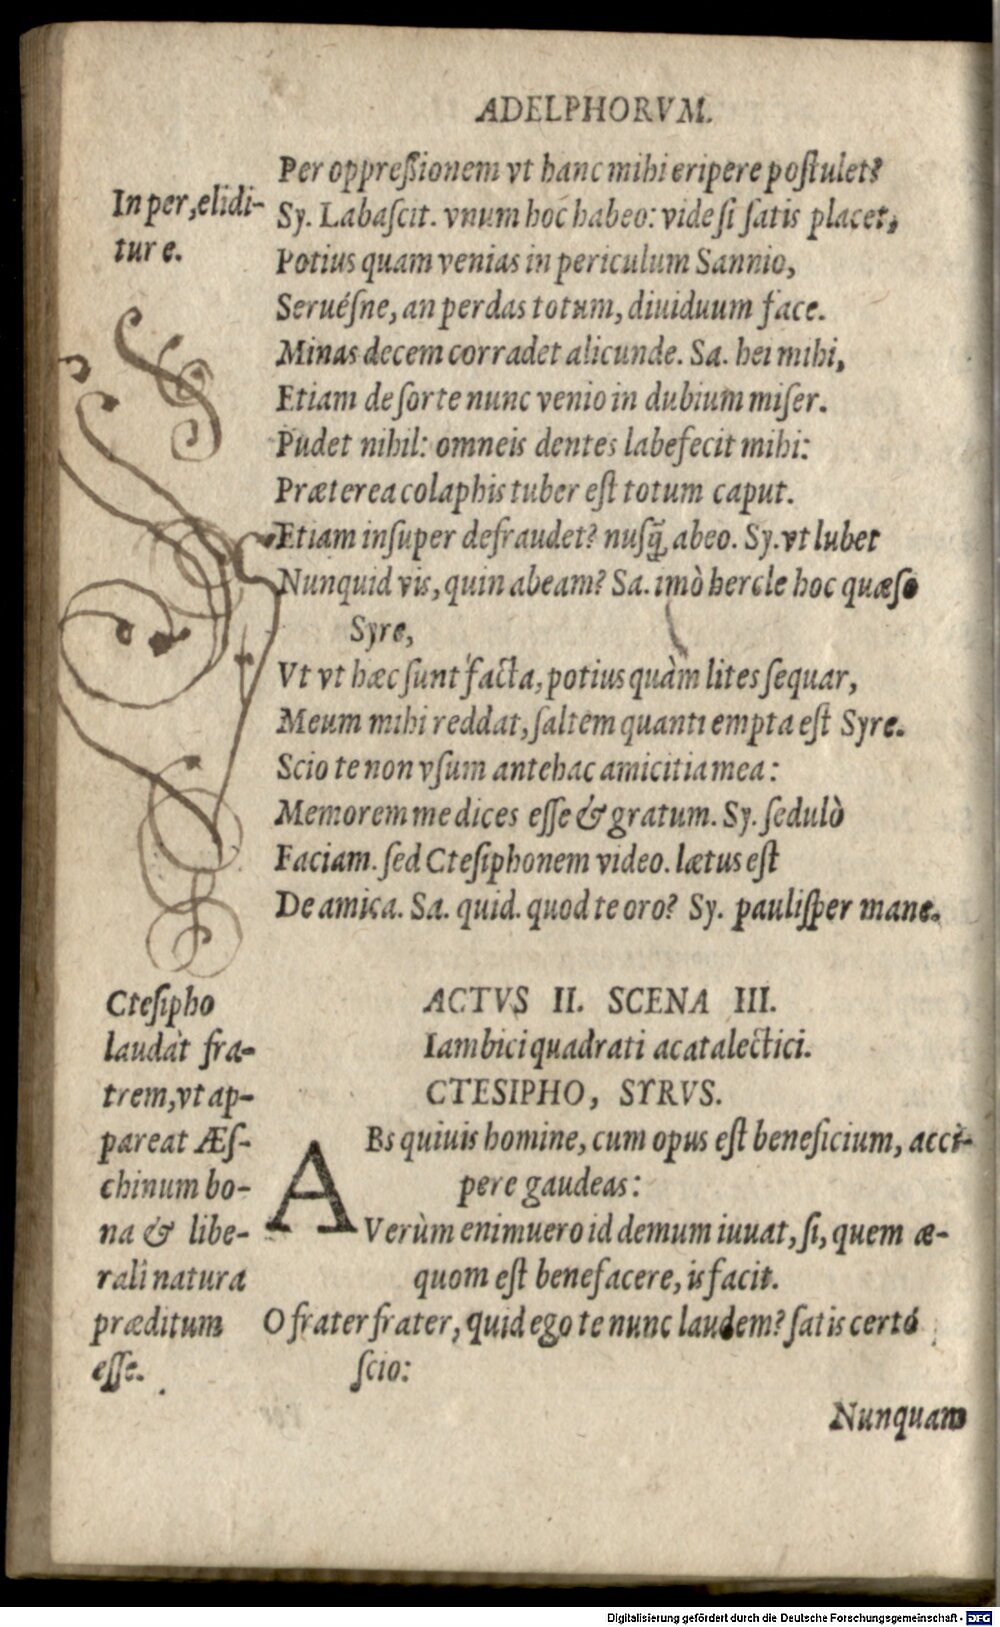 ADELPHORVM.
Per oppreſsionem vt hanc mihi eripere poſtulet?
In per, elidi-
tur e.
Sy. Labaſcit. vnum hoc habeo: vide ſi ſatis placet,
Potius quam venias in periculum Sannio,
Seruéſne, an perdas totum, diuiduum face.
Minas decem corradet alicunde. Sa. hei mihi,
Etiam de ſorte nunc venio in dubium miſer.
Pudet nihil: omneis dentes labefecit mihi:
Præterea colaphis tuber eſt totum caput.
Etiam inſuper defraudet? nuſq̃ abeo. Sy. vt lubet
Nunquid vis, quin abeam? Sa. imò hercle hoc quæſo
Syre,
Vt vt hæc ſunt facta, potius quàm lites ſequar,
Meum mihi reddat, ſaltem quanti empta eſt Syre.
Scio te non vſum antehac amicitia mea:
Memorem me dices eſſe & gratum. Sy. ſedulò
Faciam. ſed Cteſiphonem video. lætus eſt
De amica. Sa. quid. quod te oro? Sy. pauliſper mane.
Cteſipho
laudàt fra-
trem, vt ap-
pareat Æſ-
chinum bo-
na & libe-
rali natura
præditum
eſſe.
ACTVS II. SCENA III.
Iambici quadrati acatalectici.
CTESIPHO, SYRVS.
ABs quiuis homine, cum opus eſt beneficium, acci-
pere gaudeas:
Verùm enimuero id demum iuuat, ſi, quem æ-
quom eſt benefacere, is facit.
O frater frater, quid ego te nunc laudem? ſatis certó
ſcio:
Nunquam
Digitalisierung gefördert durch die Deutsche Forschungsgemeinschaft - DFG